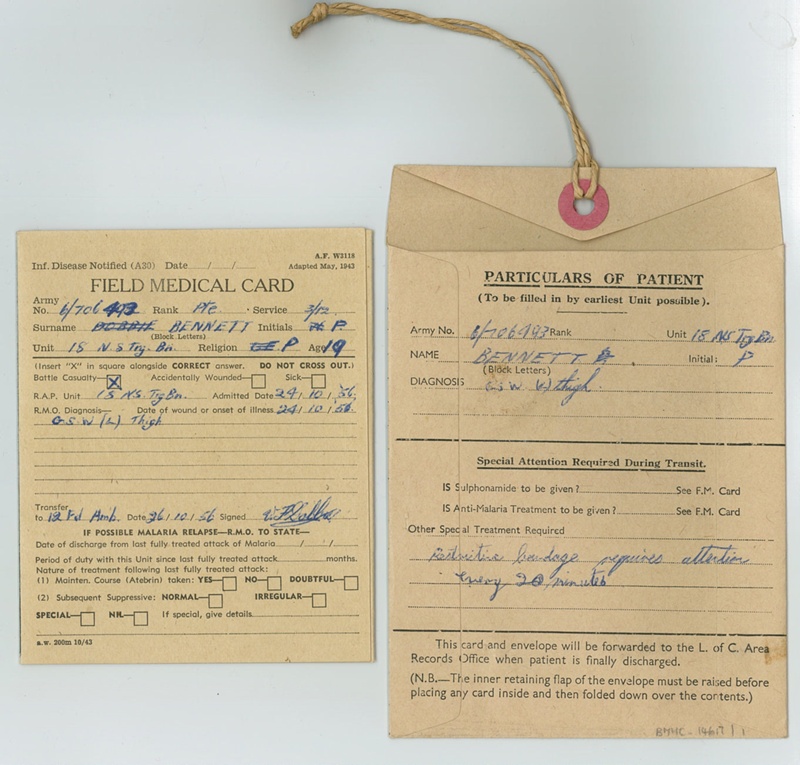 A.F. W3118
Inf. Disease Notified (A30) Date / /
Adapted May, 1943
FIELD MEDICAL CARD
Army
No. 6/706493 Rank Pte. Service 3/12
Surname BENNETT Initials P.
(Block Letters)
Unit 18 N S Trg. Bn. Religion P Age 19
(Insert "X" in square alongside CORRECT answer. DO NOT CROSS OUT.)
Battle Casualty— X Accidentally Wounded— Sick—
R.A.P. Unit 18 N.S. Trg Bn. Admitted Date 24 / 10 / 56.
R.M.O. Diagnosis— Date of wound or onset of illness 24 / 10 / 56.
G S W (L) Thigh
Transfer
to 12 Fd Amb. Date 26 / 10 / 56 Signed
IF POSSIBLE MALARIA RELAPSE—R.M.O. TO STATE—
Date of discharge from last fully treated attack of Malaria / /
Period of duty with this Unit since last fully treated attack months.
Nature of treatment following last fully treated attack:
(1) Mainten. Course (Atebrin) taken: YES— NO— DOUBTFUL—
(2) Subsequent Suppressive: NORMAL— IRREGULAR—
SPECIAL— NIL— If special, give details
a.w. 200m 10/43
PARTICULARS OF PATIENT
(To be filled in by earliest Unit possible).
Army No. 6/706493 Rank Unit 18 NS Trg Bn
NAME BENNETT Initial: P
(Block Letters)
DIAGNOSIS G S W (L) thigh.
Special Attention Required During Transit.
IS Sulphonamide to be given? See F.M. Card
IS Anti-Malaria Treatment to be given? See F.M. Card
Other Special Treatment Required
bandage requires attention
every 20 minutes
This card and envelope will be forwarded to the L. of C. Area
Records Office when patient is finally discharged.
(N.B.—The inner retaining flap of the envelope must be raised before
placing any card inside and then folded down over the contents.)